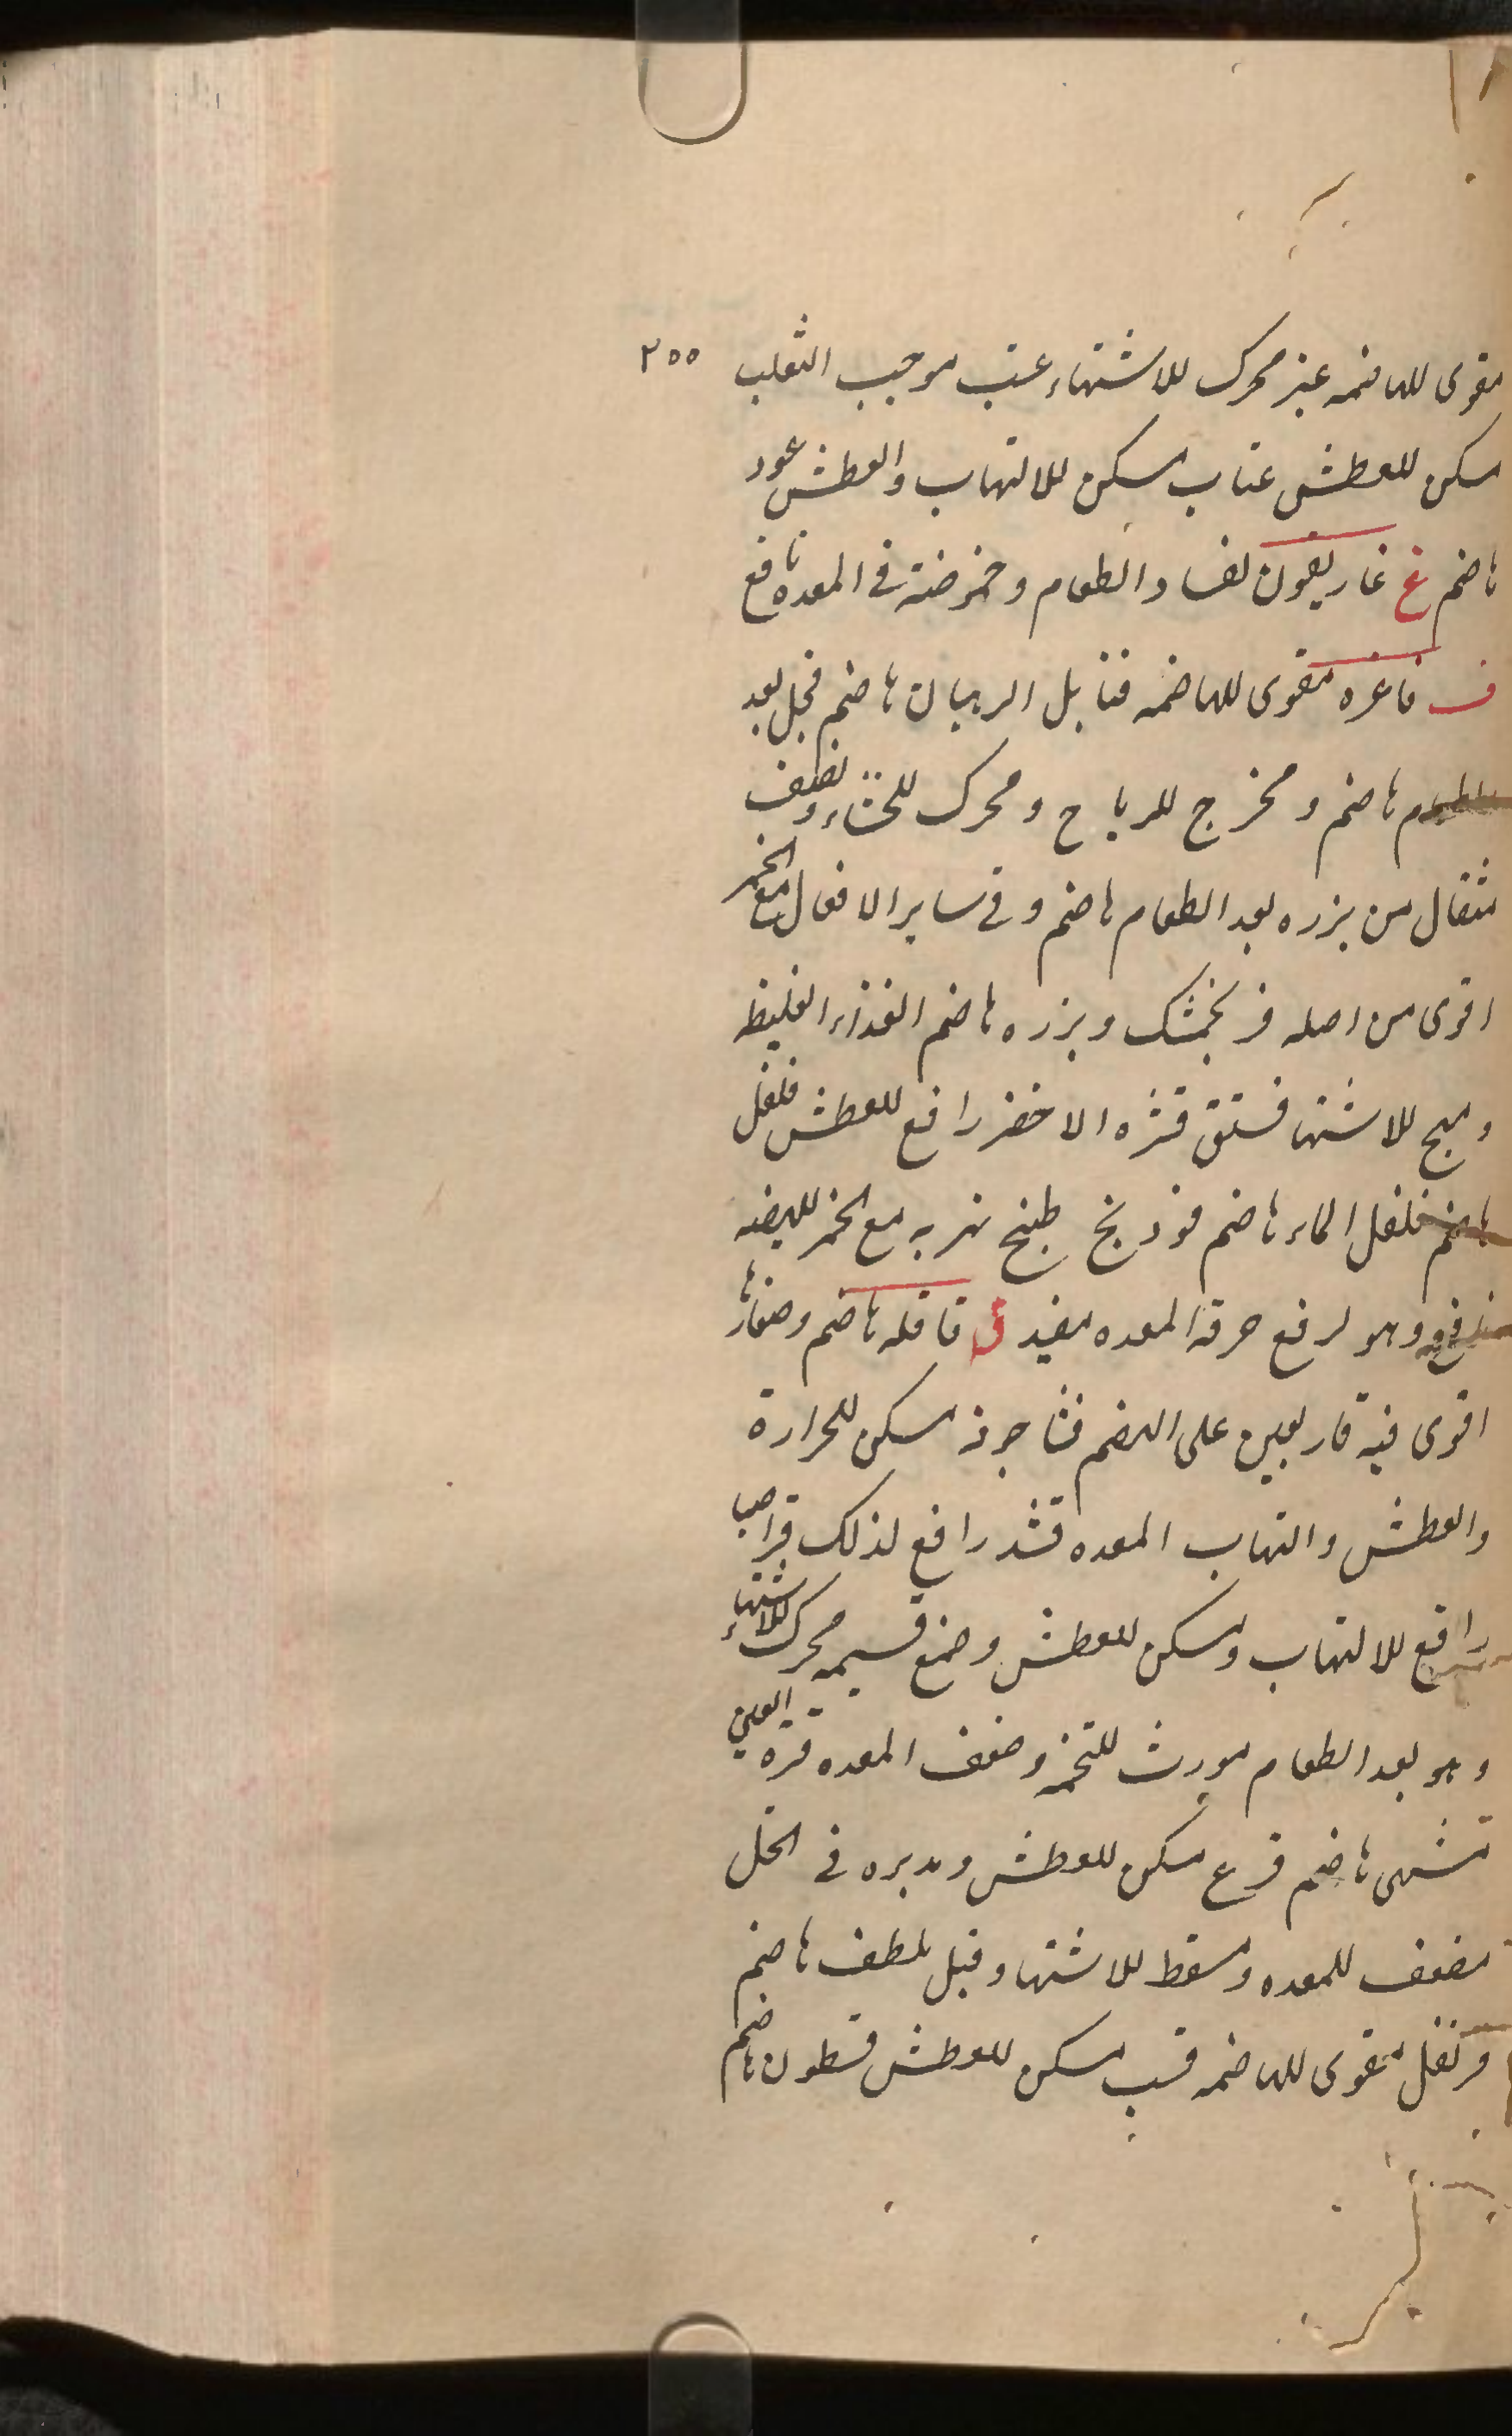 ٢٥٥
مقوى للهاضمه عنبر محرك للاشتهاء عنب موجب الثعلب
مسكن للعطش عناب مسكن للالتهاب والعطش عود
هاضم غ غاريقون لفساد الطعام وحموضته فى المعده نافع
ف فاغره مقوى للهاضمه فنابل الرهبان هاضم فجل بعد
الطعام هاضم ومخرج للرياح ومحرك للجشاء ونصف
مثقال من بزره بعد الطعام هاضم وفى ساير الافعال مع الخمر
اقوى من اصله فرنجمشك وبزره هاضم الغذاء الغليظ
ومهيج للاشتها فستق قشره الاخضر رافع للعطش فلفل
هاضم فلفل الماء هاضم فودنج طبيخ شربه مع الخمر للهيضه
نافع وهو لرفع حرقة المعده مفيد ق قاقله هاضم وصغارها
اقوى فيه قار يعين على الهضم مسكن للحرارة
والعطش والتهاب المعده قثد رافع لذلك قراصيا
رافع للالتهاب ومسكن للعطش وصمغ قسيمه محرك للاشتهاء
وهو بعد الطعام مورث للتخمه وضعف المعده قرة العين
مشهى هاضم قرع مسكن للعطش ومدبره فى الخل
مضعف للمعده ومسقط للاشتها وقيل ملطف هاضم
قرنفل مقوى للهاضمه قسب مسكن للعطش قسطون هاضم